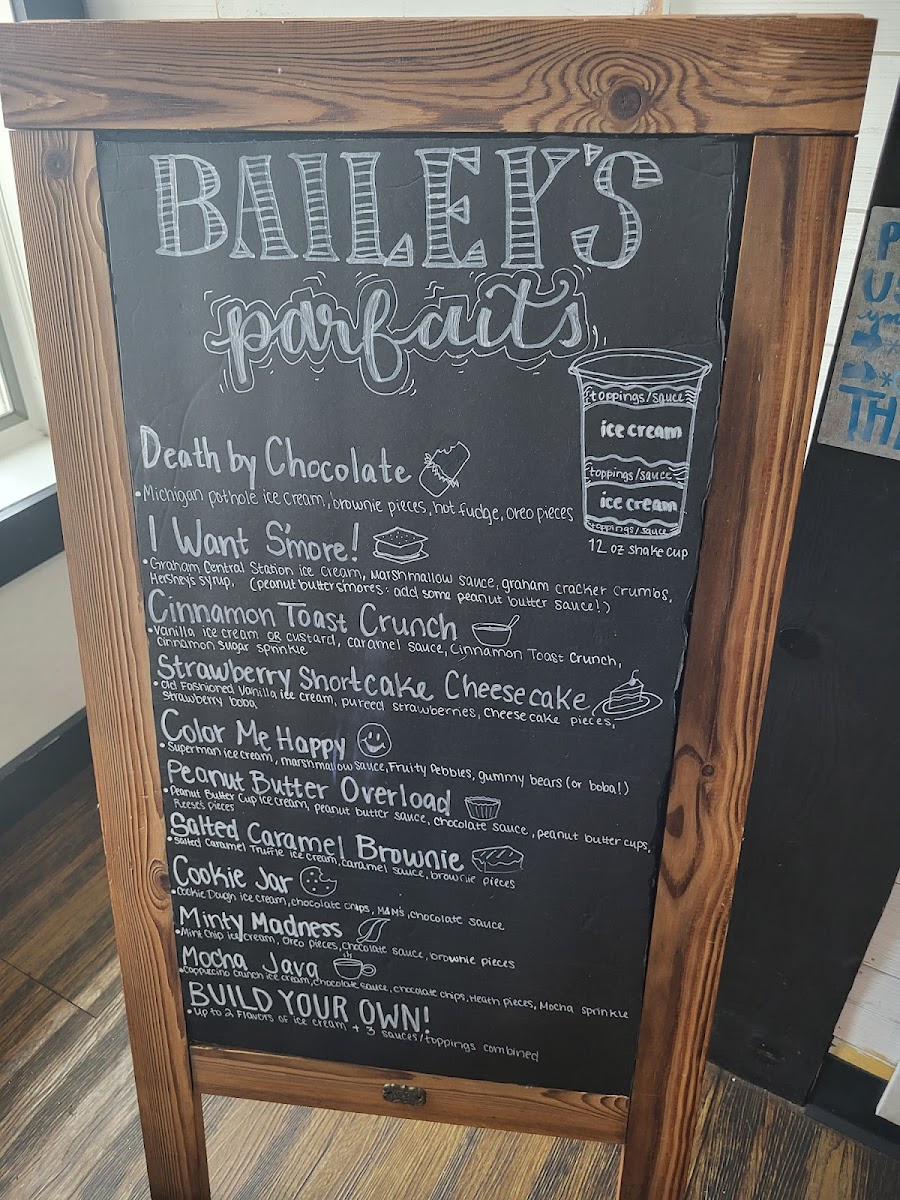 BAILEY'S
parfaits
toppings/sauce
ice cream
toppings/sauce
ice cream
toppings/sauce
12 oz shake cup
Death by Chocolate
•Michigan pothole ice cream, brownie pieces, hot fudge, oreo pieces
I Want S'more!
•Graham Central Station ice cream, marshmallow sauce, graham cracker crumbs,
Hershey's syrup. (peanut butter s'mores: add some peanut butter sauce!)
Cinnamon Toast Crunch
•Vanilla ice cream OR custard, caramel sauce, Cinnamon Toast Crunch,
cinnamon sugar sprinkle
Strawberry Shortcake Cheesecake
•Old Fashioned Vanilla ice cream, pureed strawberries, cheesecake pieces,
strawberry boba
Color Me Happy
•Superman ice cream, marshmallow sauce, Fruity Pebbles, gummy bears (or boba!)
Peanut Butter Overload
•Peanut Butter Cup ice cream, peanut butter sauce, chocolate sauce, peanut butter cups,
Reese's Pieces
Salted Caramel Brownie
•Salted Caramel Truffle ice cream, caramel sauce, brownie pieces
Cookie Jar
•Cookie Dough ice cream, chocolate chips, M&M's, chocolate sauce
Minty Madness
•Mint Chip ice cream, Oreo pieces, chocolate sauce, brownie pieces
Mocha Java
•Cappuccino Crunch ice cream, chocolate sauce, chocolate chips, Heath pieces, Mocha sprinkle
BUILD YOUR OWN!
•Up to 2 flavors of ice cream + 3 sauces/toppings combined